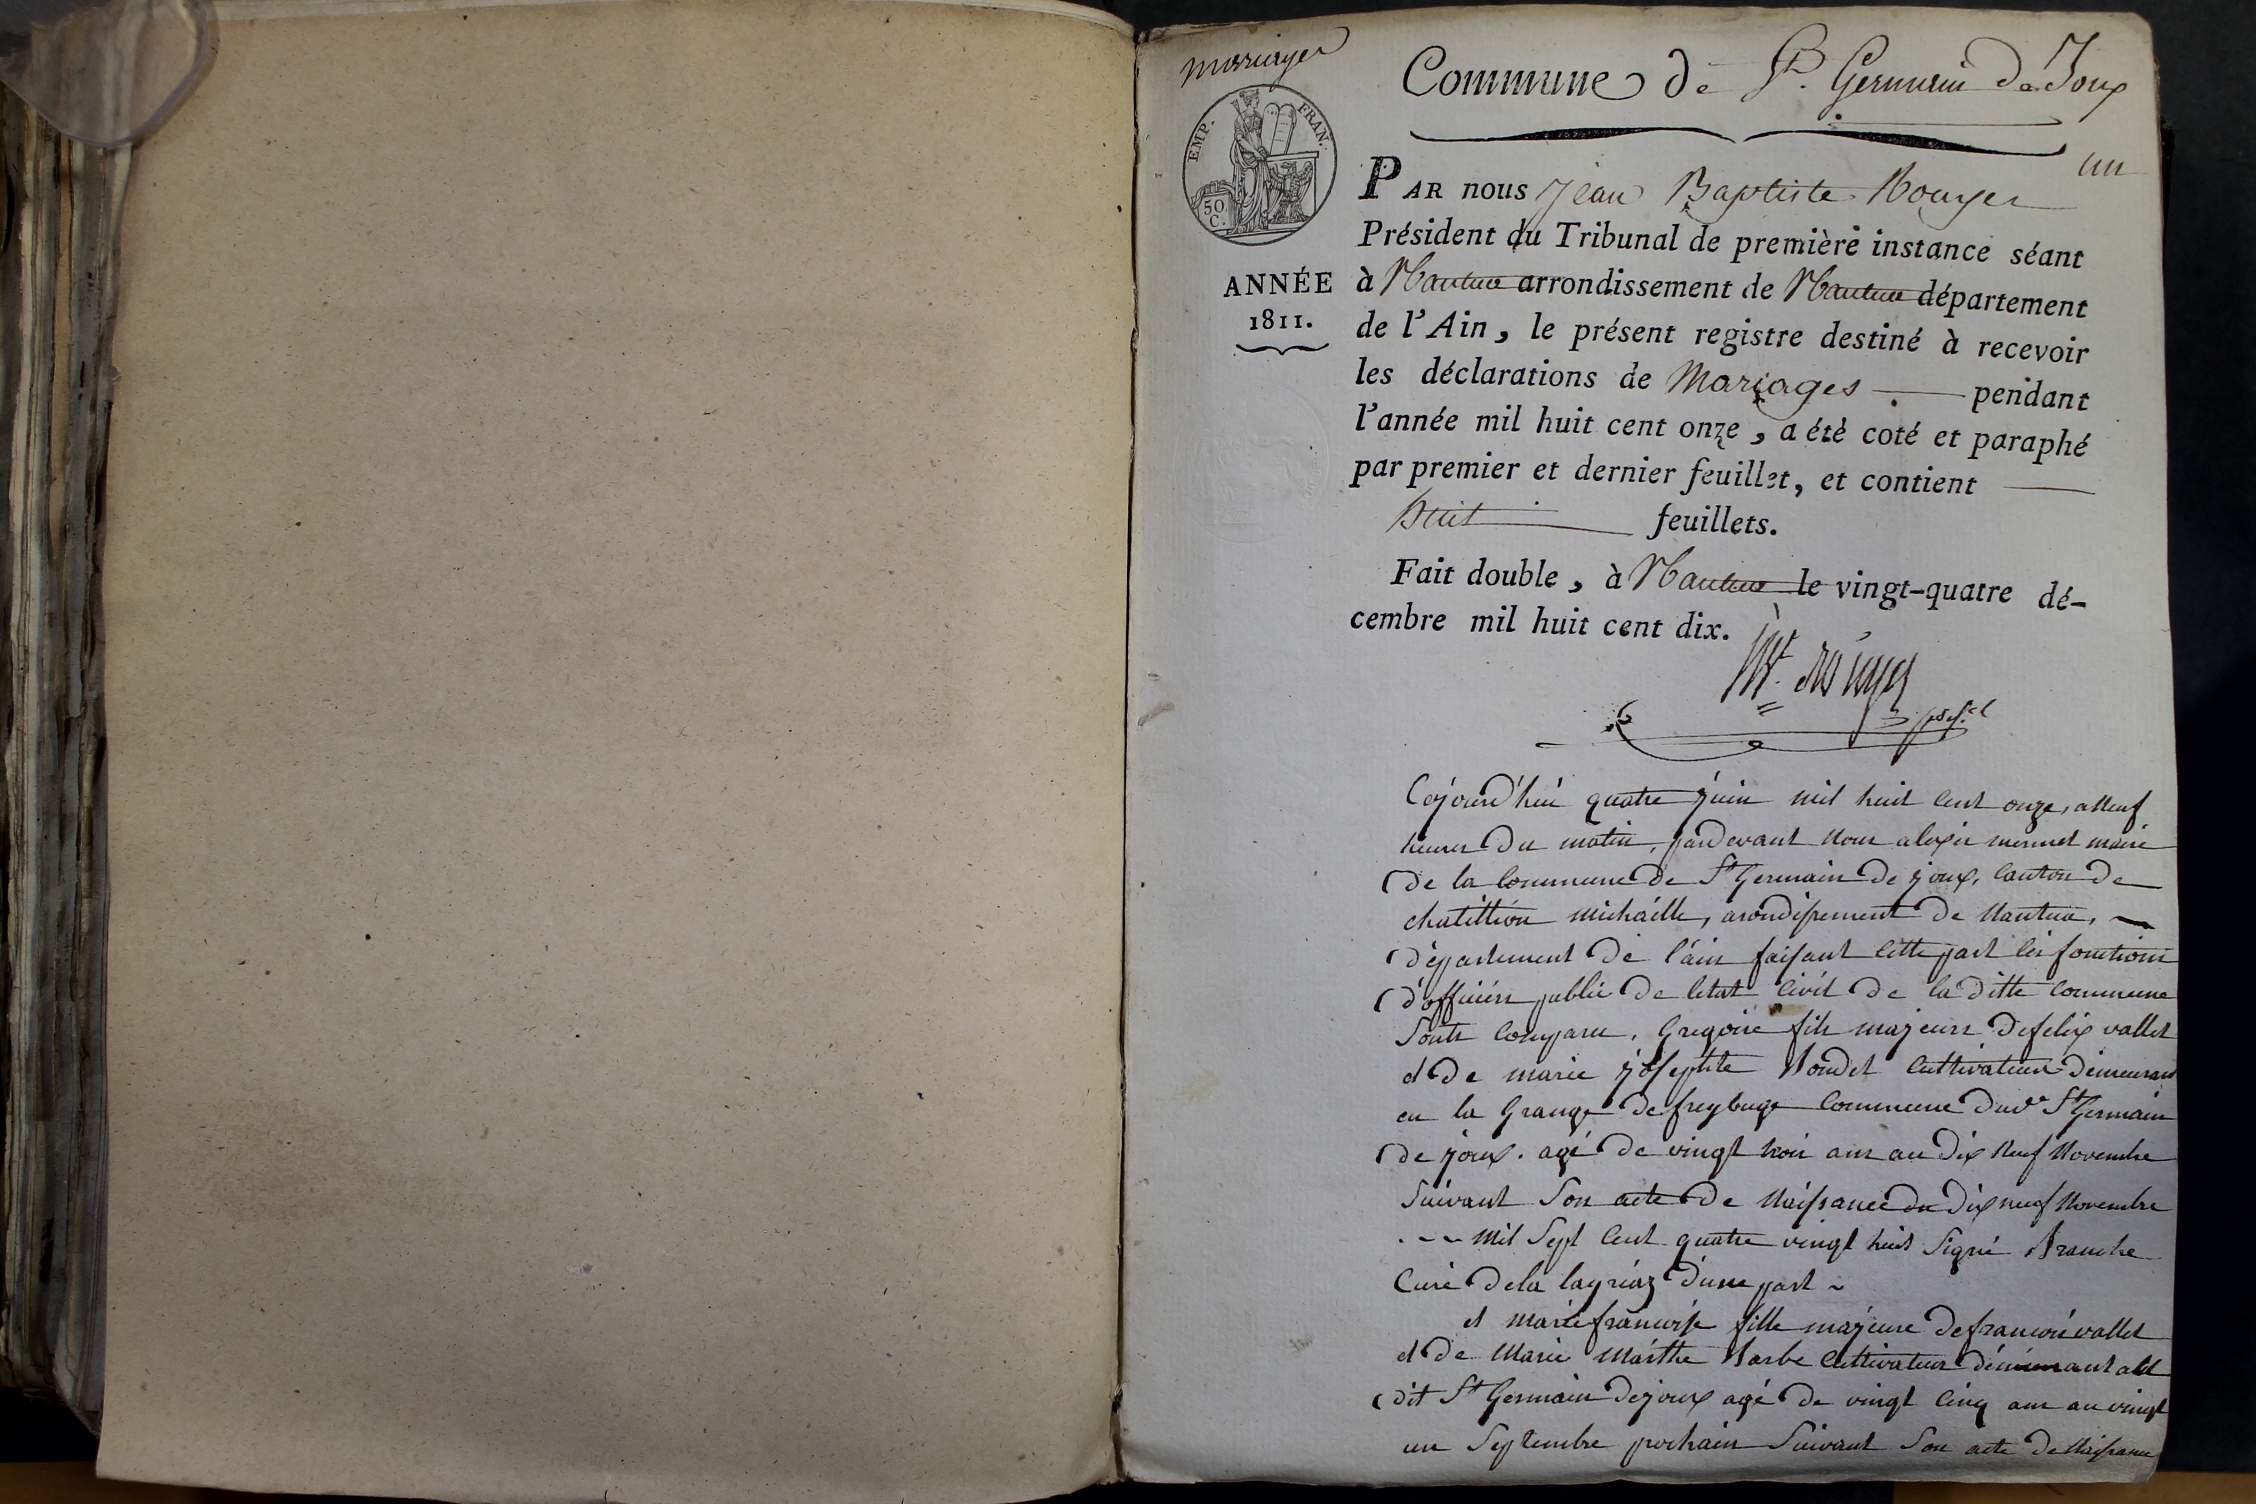 mariages
Commune de St. Germain de Joux
EMP. FRAN.
50
C.
un
PAR nous Jean Baptiste Rouyer
Président du Tribunal de première instance séant
ANNÉE
1811.
à Nantua arrondissement de Nantua département
de l'Ain, le présent registre destiné à recevoir
les déclarations de Mariages pendant
l'année mil huit cent onze, a été coté et paraphé
par premier et dernier feuillet, et contient
huit feuillets.
Fait double, à Nantua le vingt-quatre dé-
cembre mil huit cent dix.
Cejourd'hui quatre juin mil huit cent onze, a neuf
heures du matin, pardevant nous alexis mermet maire
de la commune de St Germain de joux, canton de
chatillion michaille, arondissement de Nantua,
département de l'ain faisant cette part les fonctions
d'officier public de letat civil de la ditte commune
Sont comparu, Gregoire fils majeur de felix vallet
et de marie josephte cultivateur demeurant
en la Grange de commune dud St Germain
de joux. agé de vingt trois ans au dix neuf Novembre
Suivant Son acte de Naissance du dix neuf Novembre
mil Sept cent quatre vingt huit Signé
Curé de la d'une part
et marie francoise fille majeure de francois vallet
et de Marie Marthe barbe cultivateur démeurant
dit St Germain de joux agé de vingt cinq ans au vingt
un Septembre prochain Suivant Son acte de Naissance